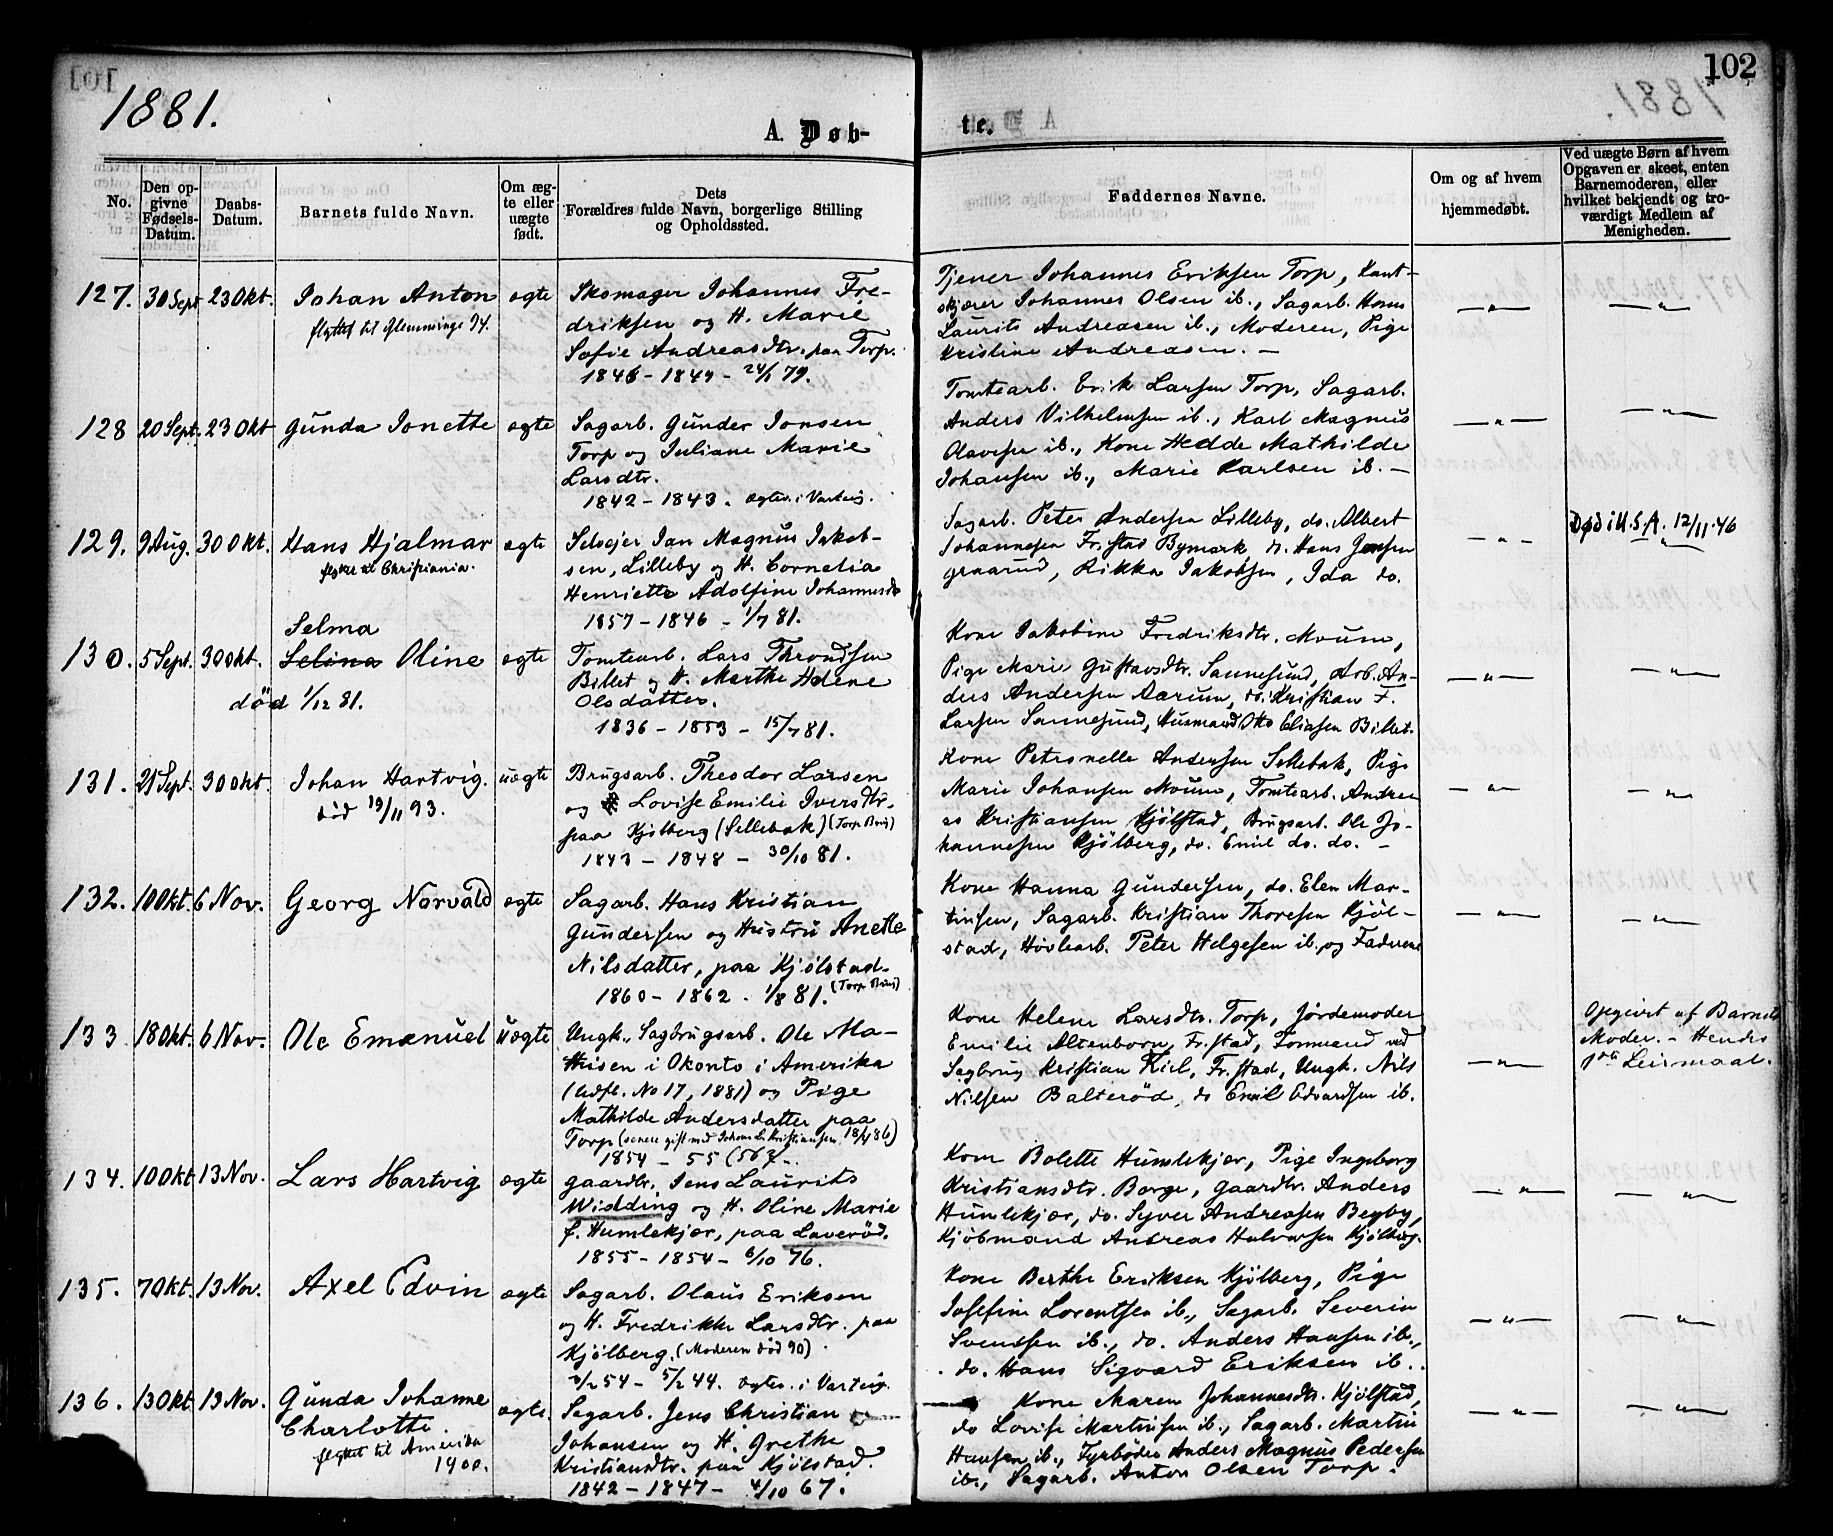 102
1881.
A. Døb-
te.
No.
Den op-
givne
Fødsels-
Datum.
Daabs-
Datum.
Barnets fulde Navn.
Om æg-
te eller
uægte
født.
Dets
Forældres fulde Navn, borgerlige Stilling
og Opholdssted.
Faddernes Navne.
Om og af hvem
hjemmedøbt.
Ved uægte Børn af hvem
Opgaven er skeet, enten
Barnemoderen, eller
hvilket bekjendt og tro-
værdigt Medlem af
Menigheden.
127. 30 Sept 23 Okt. Johan Anton ægte
flyttet til Glemminge 94.
Skomager Johannes Fre-
driksen og H. Marie
Sofie Andreasdtr. paa Torp.
1846 - 1849 - 24/1 79.
Tjener Johannes Eriksen Torp, Kant-
skjærer Johannes Olsen ib., Sagarb. Hans
Laurits Andreasen ib., Moderen, Pige
Kristine Andreasen. -
- " -
- " -
128 20 Sept. 23 Okt Gunda Jonette ægte
Sagarb. Gunder Jonsen
Torp og Juliane Marie
Larsdtr.
1842 - 1843. ægtev. i Varteig.
Tomtearb. Erik Larsen Torp, Sagarb.
Anders Vilhelmsen ib., Karl Magnus
Olavesen ib., Kone Hedde Mathilde
Johansen ib., Marie Karlsen ib. -
- " -
- " -
129. 9 Aug. 30 Okt. Hans Hjalmar ægte
flyttet til Christiania.
Selvejer Jan Magnus Jakob-
sen, Lilleby og H. Cornelia
Henriette Adolfine Johannesdtr
1857 - 1846 - 1/7 81.
Sagarb. Peter Andersen Lilleby, do. Albert
Johannesen Fr.stad Bymark, do. Hans Jensen
graarud, Rikka Jakobsen, Ida do.
- " -
Død i U.S.A. 12/11 46
- " -
Selma
130. 5 Sept. 30 Okt. Selina Oline ægte
död 1/12 81.
Tomtearb. Lars Throndsen
Billet og H. Marthe Helene
Olsdatter.
1836 - 1853 - 15/7 81.
Kone Jakobine Fredriksdtr. Moum,
Pige Marie Gustavsdtr. Sannesund, Arb. An-
ders Andersen Aarum, do. Kristian F.
Larsen Sannesund, Husmand Otto Eliasen Billet.
- " -
- " -
131. 21 Sept. 30 Okt. Johan Hartvig. uægte
död 19/11 93.
Brugsarb. Theodor Larsen
og Lovise Emilie Iversdtr.
paa Kjølberg (Sellebak) (Torp Brug)
1843 - 1848 - 30/10 81.
Kone Petronelle Andersen Sellebak, Pige
Marie Johansen Moum, Tomtearb. Andre
as Kristiansen Kjølstad, Brugsarb. Ole Jo-
hannesen Kjølberg, do. Emil do. do. -
- " -
- " -
132. 10 Okt. 6 Nov. Georg Norvald ægte
Sagarb. Hans Kristian
Gundersen og Hustru Anette
Nilsdatter, paa Kjølstad.
(Torp Brug)
1860 - 1862 - 1/8 81.
Kone Hanna Gundersen, do. Elen Mar-
tinsen, Sagarb. Kristian Thoresen Kjøl-
stad, Høvlearb. Peter Helgesen ib. og Faderen
- " -
- " -
133 18 Okt. 6 Nov. Ole Emanuel uægte
Ungk., Sagbrugsarb. Ole Ma-
thisen i Okonto i Amerika
(Udfl. No 17, 1881) og Pige
Mathilde Andersdatter paa
Torp (senere gift med Johan L. Kristiansen 18/4 86)
1854 - 55 (56?)..
Kone Helene Larsdtr. Torp, Jordemoder
Emilie Altenborn, Fr.stad, Formand ved
Sagbrug Kristian Kiel, Fr.stad, Ungk. Nils
Nilsen Balterød, do Emil Edvardsen ib.
- " -
Opgivet af Barnets
Moder. - Hendes
1ste Leiermaal.
134. 10 Okt 13 Nov. Lars Hartvig ægte
gaardbr. Jens Laurits
Widding og H. Oline Marie
f. Humlekjær, paa Laverød.
1855 - 1854 - 6/10 76.
Kone Bolette Humlekjær, Pige Ingeborg
Kristiansdtr. Borge, gaardbr. Anders
Humlekjær, do. Syver Andreasen Begby,
Kjøbmand Andreas Halvorsen Kjølberg.
- " -
- " -
135. 7 Okt. 13 Nov. Axel Edvin ægte
Sagarb. Olaus Eriksen
og H. Fredrikke Larsdtr. paa
Kjølberg. (Moderen död 90)
3/2 54 - 5/2 44. ægtev. i Varteig.
Kone Berthe Eriksen Kjølberg, Pige
Josefine Lorentsen ib., Sagarb. Severin
Svendsen ib., do. Anders Hansen ib.,
do. Hans Sigvard Eriksen ib..
- " -
- " -
136. 13 Okt 13 Nov. Gunda Johanne ægte.
Charlotte.
flyttet til Amerika
1900.
Sagarb. Jens Christian
Johansen og H. Grethe
Kristiansdtr. paa Kjølstad.
1842 - 1847 - 4/10 67.
Kone Maren Johannesdtr. Kjølstad,
do Lovise Martinsen ib., Sagarb. Martin
Hansen ib., Fyrbøder Anders Magnus Pedersen
ib., Sagarb. Anton Olsen Torp.
- " -
- " -